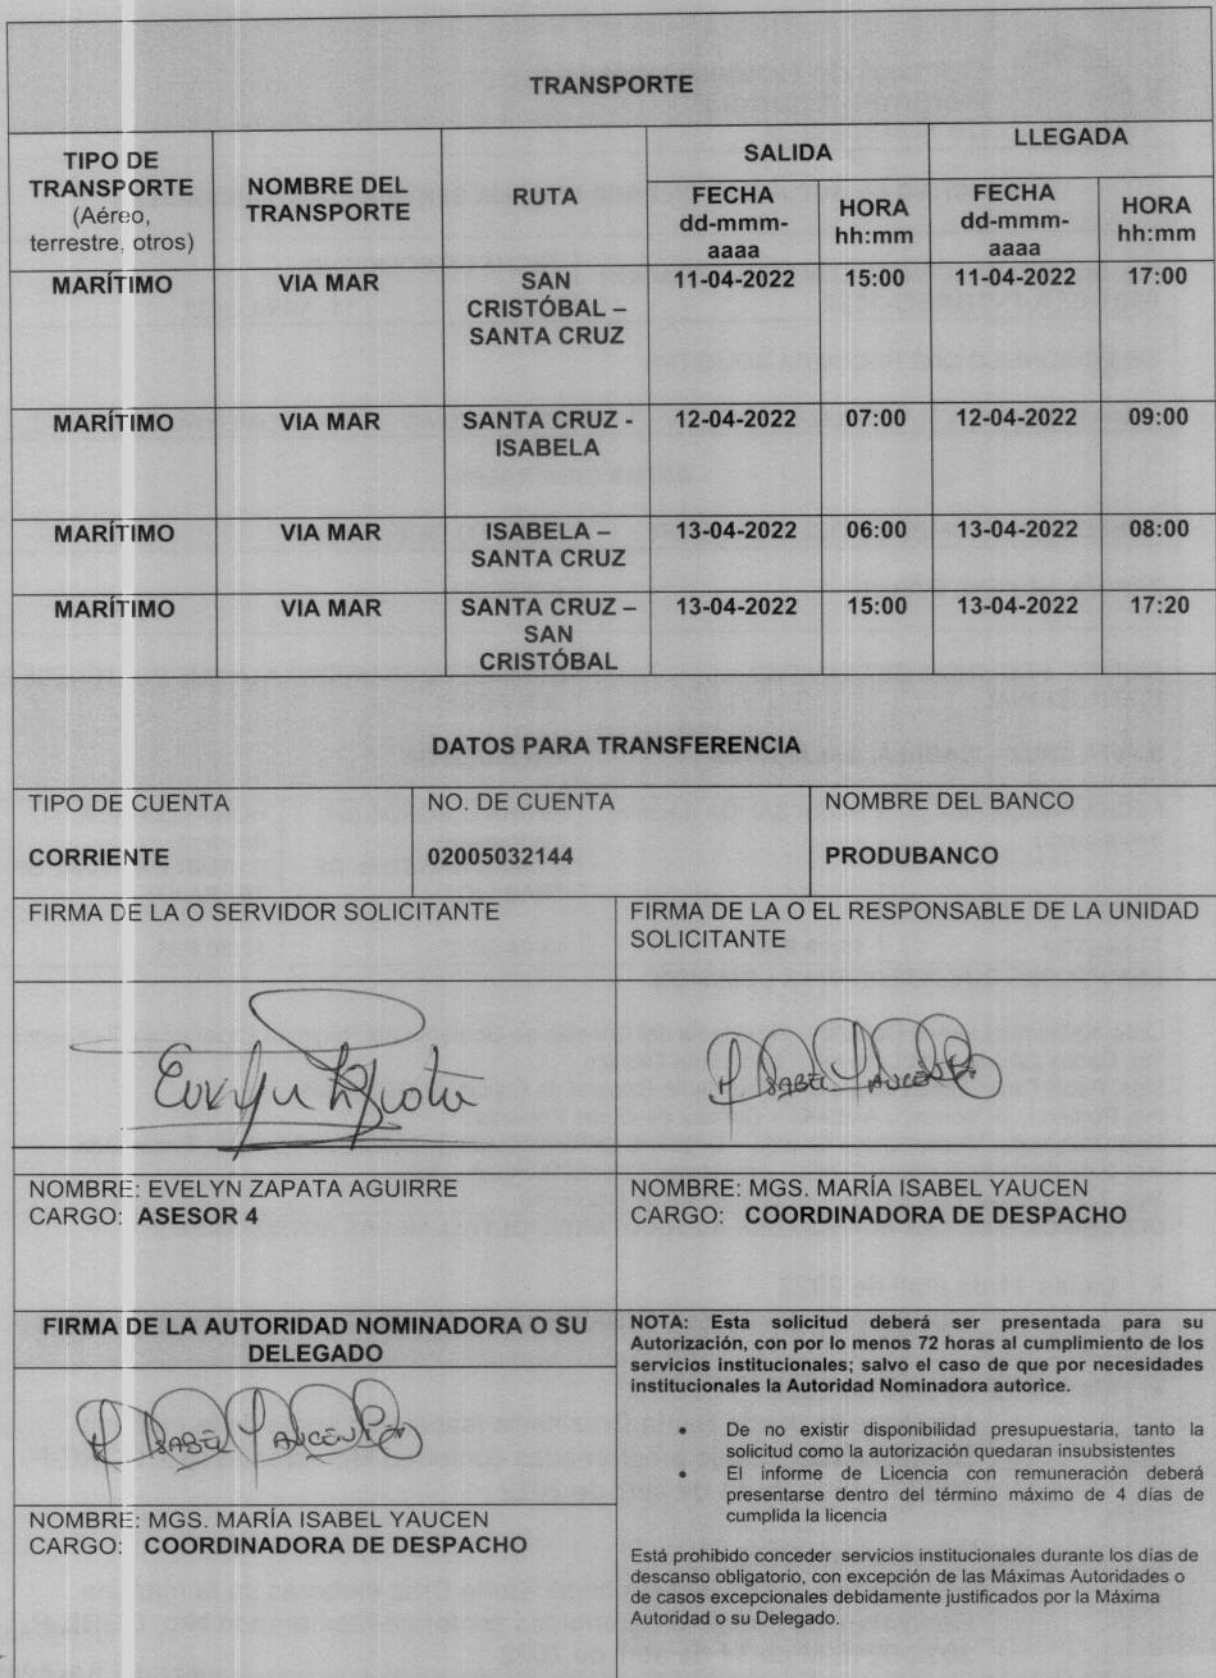 TRANSPORTE
TIPO DE
TRANSPORTE
(Aéreo,
terrestre, otros)
NOMBRE DEL
TRANSPORTE
RUTA
SALIDA
LLEGADA
FECHA
dd-mmm-
aaaa
HORA
hh:mm
FECHA
dd-mmm-
aaaa
HORA
hh:mm
MARÍTIMO
VIA MAR
SAN
CRISTÓBAL –
SANTA CRUZ
11-04-2022
15:00
11-04-2022
17:00
MARÍTIMO
VIA MAR
SANTA CRUZ -
ISABELA
12-04-2022
07:00
12-04-2022
09:00
MARÍTIMO
VIA MAR
ISABELA –
SANTA CRUZ
13-04-2022
06:00
13-04-2022
08:00
MARÍTIMO
VIA MAR
SANTA CRUZ –
SAN
CRISTÓBAL
13-04-2022
15:00
13-04-2022
17:20
DATOS PARA TRANSFERENCIA
TIPO DE CUENTA
CORRIENTE
NO. DE CUENTA
02005032144
NOMBRE DEL BANCO
PRODUBANCO
FIRMA DE LA O SERVIDOR SOLICITANTE
FIRMA DE LA O EL RESPONSABLE DE LA UNIDAD
SOLICITANTE
Evelyn Zapata
ISABEL YAUCÉN
NOMBRE: EVELYN ZAPATA AGUIRRE
CARGO: ASESOR 4
NOMBRE: MGS. MARÍA ISABEL YAUCEN
CARGO: COORDINADORA DE DESPACHO
FIRMA DE LA AUTORIDAD NOMINADORA O SU
DELEGADO
ISABEL YAUCÉN
NOMBRE: MGS. MARÍA ISABEL YAUCEN
CARGO: COORDINADORA DE DESPACHO
NOTA: Esta solicitud deberá ser presentada para su
Autorización, con por lo menos 72 horas al cumplimiento de los
servicios institucionales; salvo el caso de que por necesidades
institucionales la Autoridad Nominadora autorice.
• De no existir disponibilidad presupuestaria, tanto la
solicitud como la autorización quedaran insubsistentes
• El informe de Licencia con remuneración deberá
presentarse dentro del término máximo de 4 días de
cumplida la licencia
Está prohibido conceder servicios institucionales durante los días de
descanso obligatorio, con excepción de las Máximas Autoridades o
de casos excepcionales debidamente justificados por la Máxima
Autoridad o su Delegado.